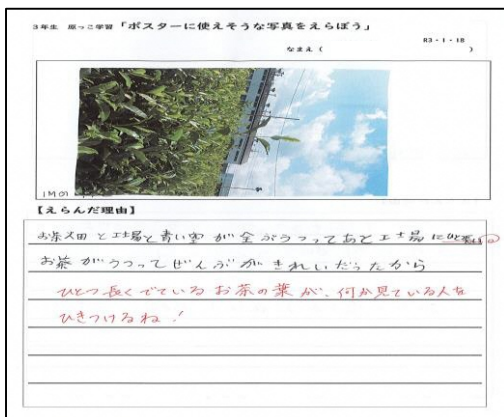 3年生 原っこ学習「ポスターに使えそうな写真をえらぼう」
R3・1・18
なまえ( )
【えらんだ理由】
お茶畑と工場と青い空が全ぶうつってあと工場に
お茶がうつってぜんぶがきれいだったから
ひとつ長くでているお茶の葉が、何か見ている人を
ひきつけるね!